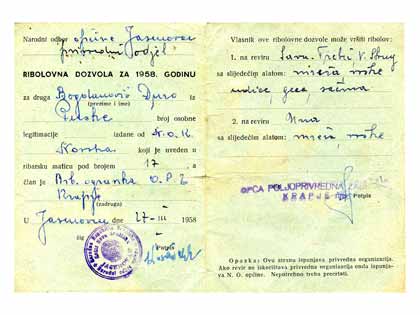 Narodni odbor općine Jasenovac
privredni odjel
RIBOLOVNA DOZVOLA ZA 1958. GODINU
za druga Bogdanović Djuro iz
(prezime i ime)
Puske broj osobne
legitimacije izdane od N.O.K.
Novska koji je uveden u
ribarsku maticu pod brojem 17, a
član je Rib. ogranka O.P.Z
Krapje
(zadruga)
U Jasenovcu dne 27-III 1958
Potpis
Vlasnik ove ribolovne dozvole može vršiti ribolov:
1. na reviru Sava, Trebež, V. Strug
sa slijedećim alatom: mreža, vrške
udice,
2. na reviru Una
sa slijedećim alatom: mreža, vrške
OPĆA POLJOPRIVREDNA ZADRUGA
KRAPJE
Potpis
Opaska: Ovu stranu ispunjava privredna organizacija.
Ako revir ne iskorištava privredna organizacija onda ispunjava
N. O. općine. Nepotrebno treba precrtati.